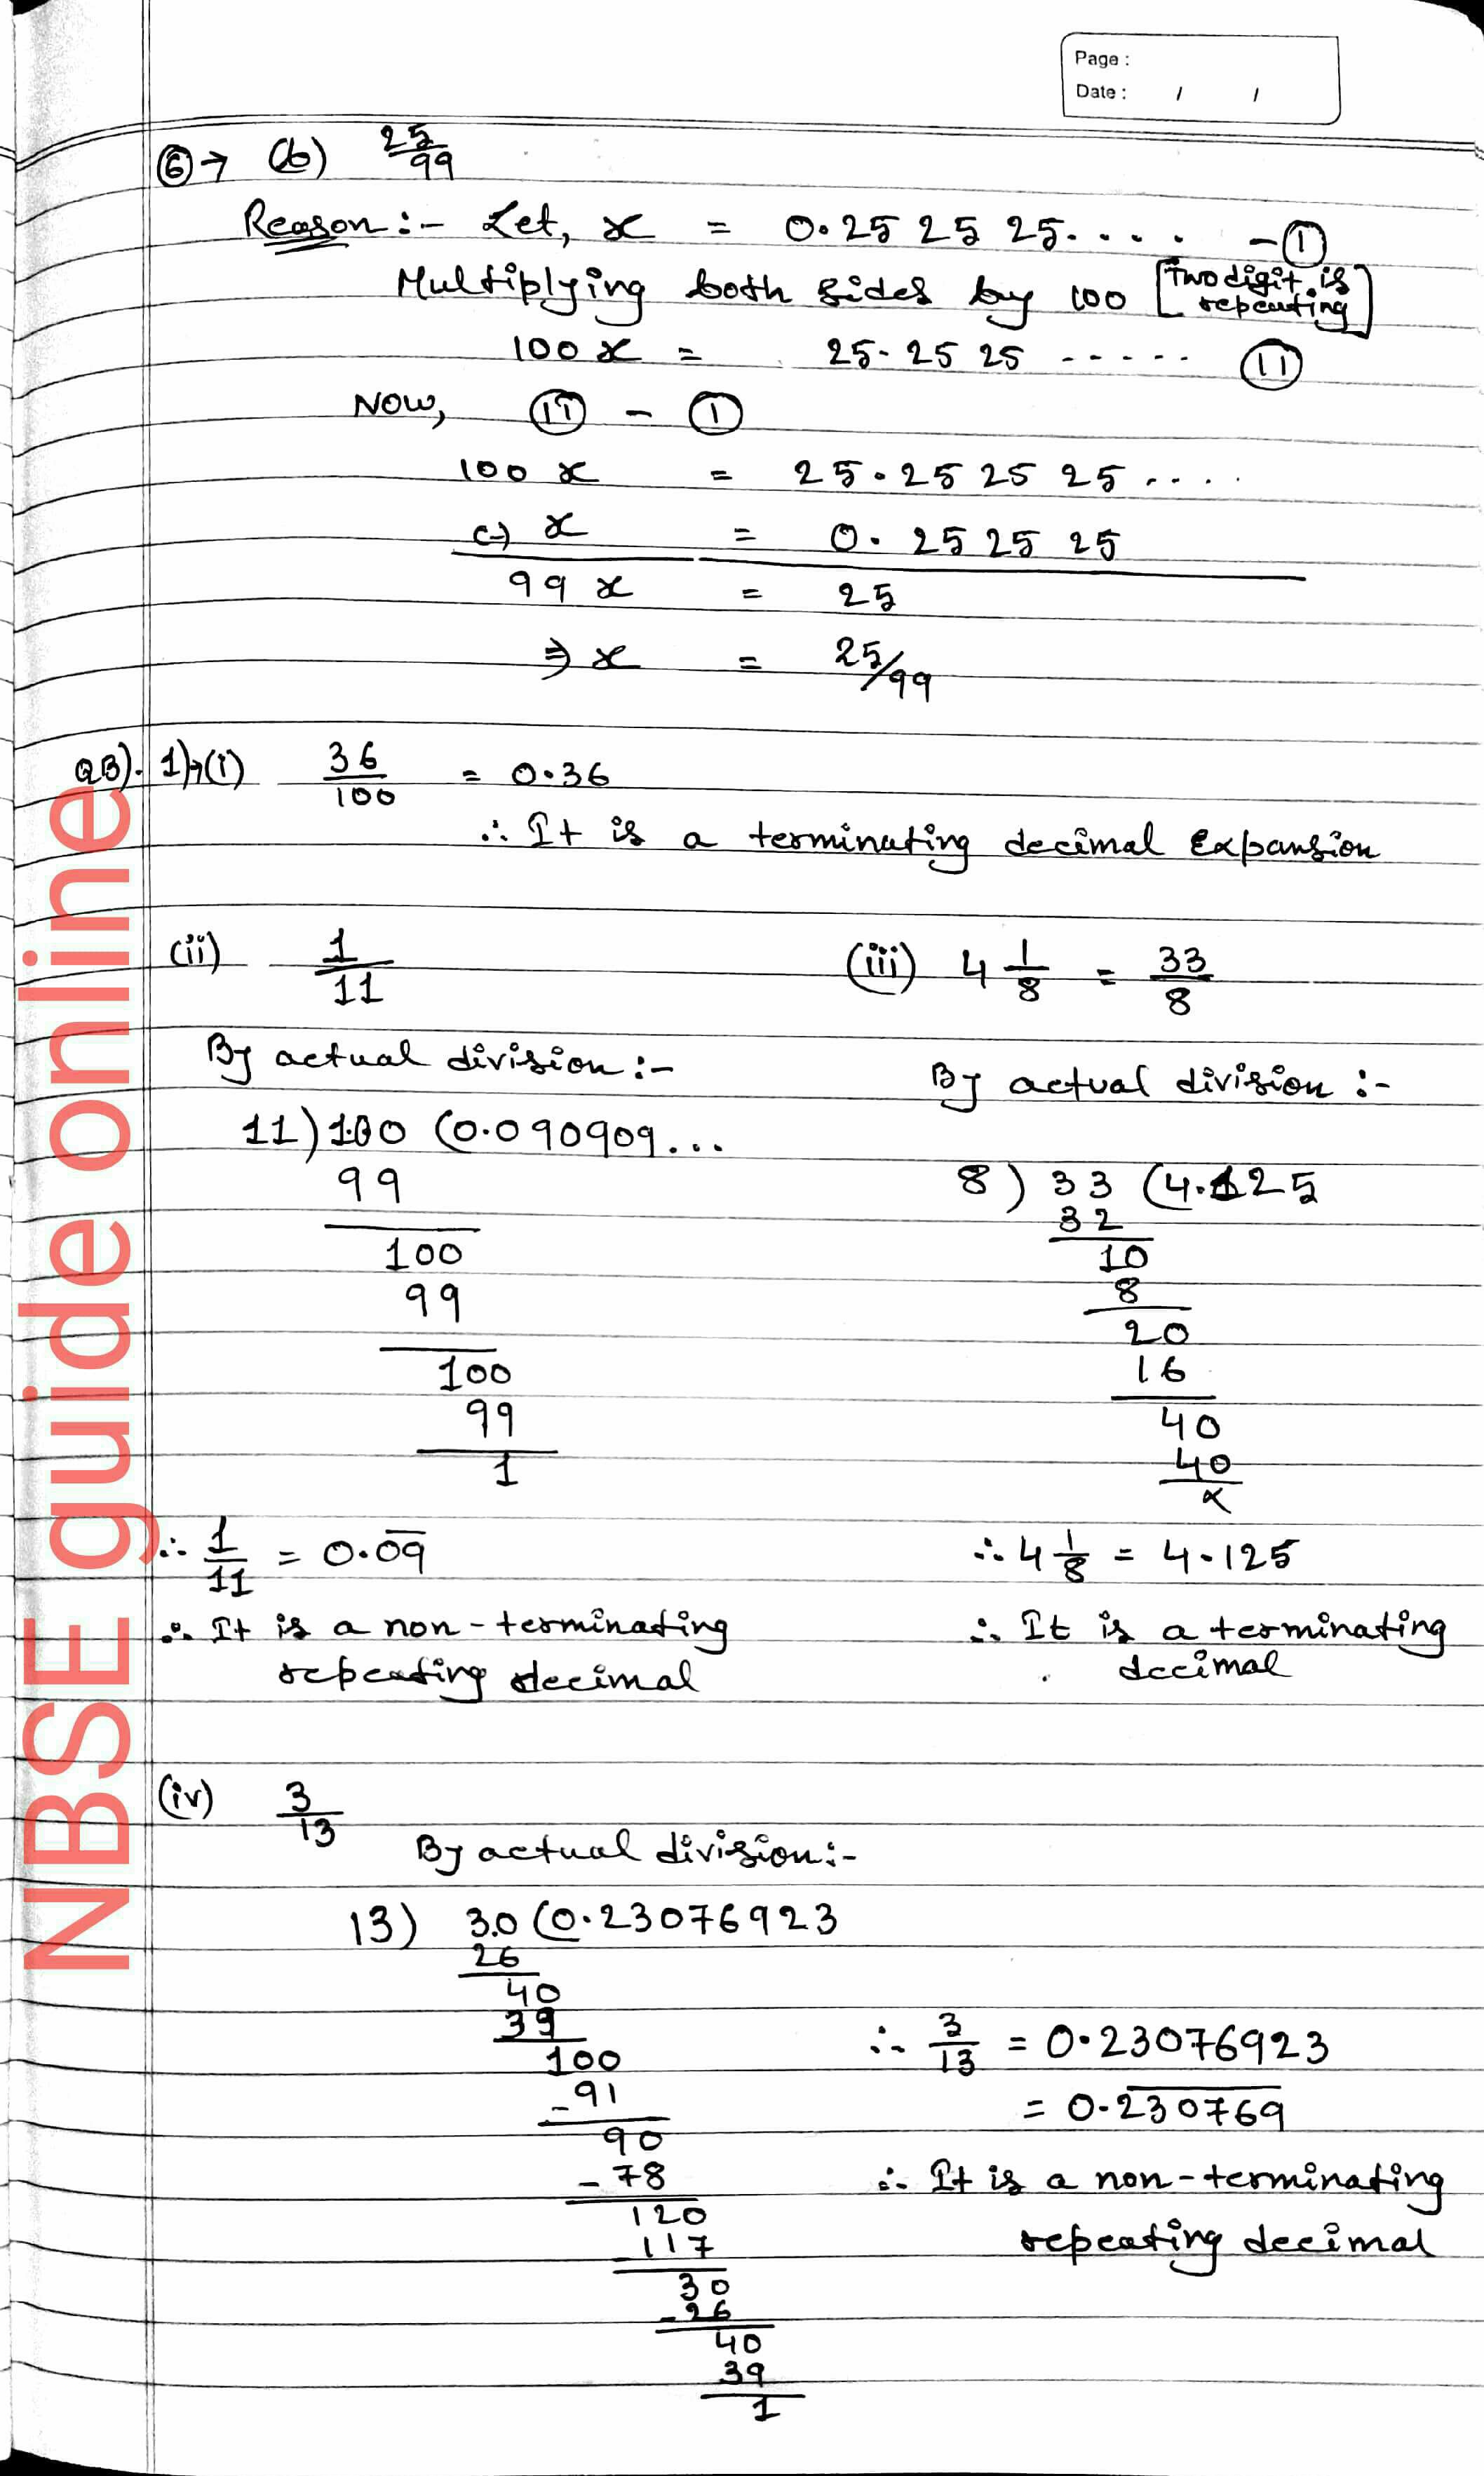 Page :
Date : / /
⑥→ (b) 25/99
Reason :- Let, x = 0.25 25 25.... -①
Multiplying both sides by 100 [Two digit is repeating]
100 x = 25.25 25 ..... ⑪
Now, ⑪ - ①
100 x = 25.25 25 25 ....
(-) x = 0.25 25 25
99 x = 25
⇒ x = 25/99
QB). 1)→(i) 36/100 = 0.36
∴ It is a terminating decimal Expansion
(ii) 1/11
By actual division :-
11) 1.00 (0.090909...
99
100
99
100
99
1
∴ 1/11 = 0.0̅9̅
∴ It is a non-terminating
repeating decimal
(iii) 4 1/8 = 33/8
By actual division :-
8 ) 33 (4.125
32
10
8
20
16
40
40
x
∴ 4 1/8 = 4.125
∴ It is a terminating
decimal
(iv) 3/13
By actual division :-
13) 3.0 (0.23076923
26
40
39
100
- 91
90
- 78
120
117
30
- 26
40
39
1
∴ 3/13 = 0.23076923
= 0.2̅3̅0̅7̅6̅9̅
∴ It is a non-terminating
repeating decimal
NBSE guide online